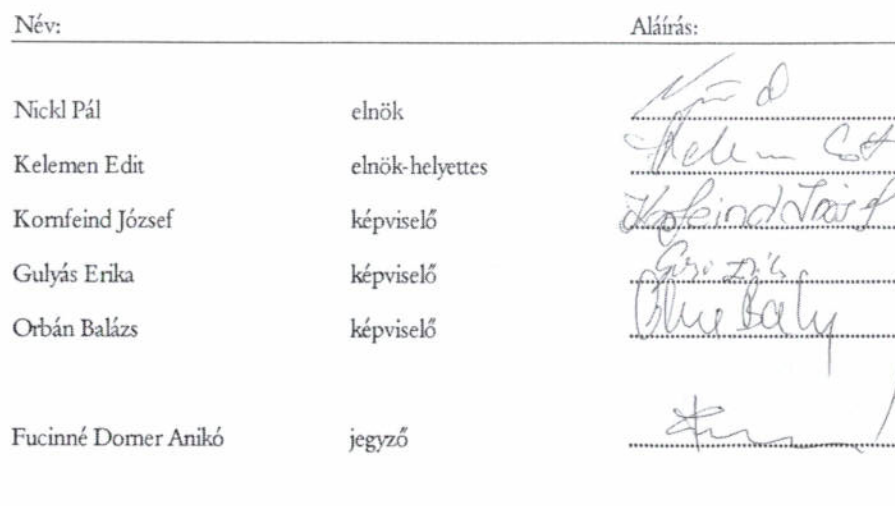 Név: Aláírás:
Nickl Pál elnök
Kelemen Edit elnök-helyettes
Kornfeind József képviselő
Gulyás Erika képviselő
Orbán Balázs képviselő
Fucinné Dorner Anikó jegyző